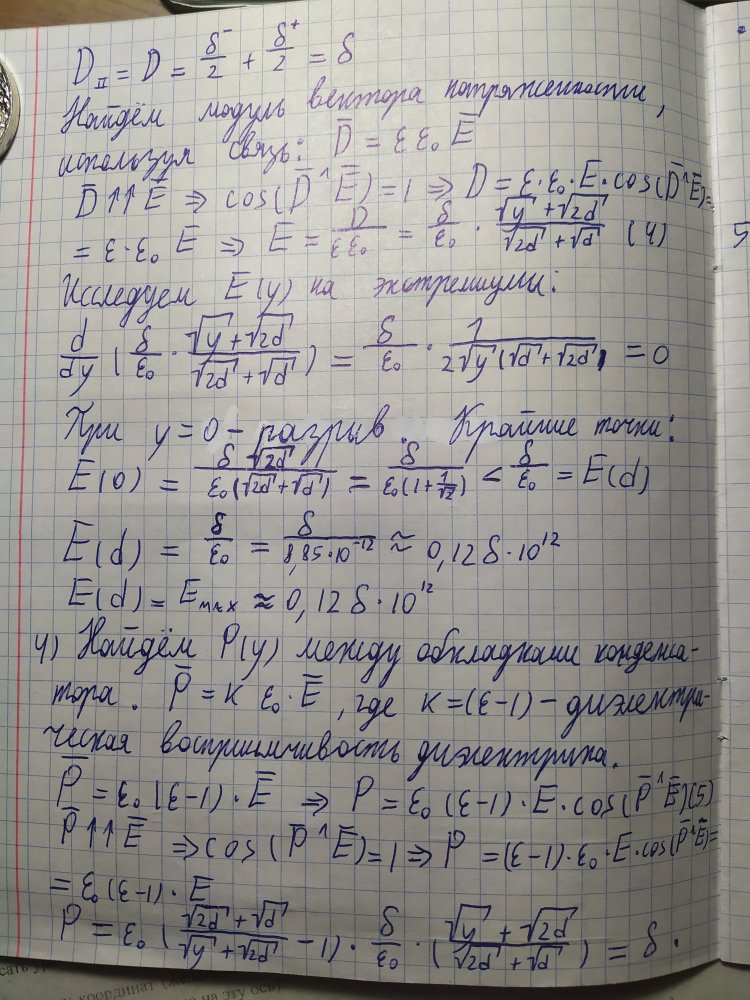 D_II = D = δ⁻/2 + δ⁺/2 = δ
Найдём модуль вектора напряженности,
используя связь: D̅ = ε ε₀ E̅
D̅ ↑↑ E̅ ⇒ cos(D̅^E̅) = 1 ⇒ D = ε·ε₀·E·cos(D̅^E̅) =
= ε·ε₀ E ⇒ E = D/(εε₀) = δ/ε₀ · (√y + √2d)/(√2d + √d) (4)
Исследуем E(y) на экстремумы:
d/dy (δ/ε₀ · (√y + √2d)/(√2d + √d)) = δ/ε₀ · 1/(2√y (√d + √2d)) = 0
При y = 0 – разрыв. Крайние точки:
E(0) = δ√2d/(ε₀(√2d + √d)) = δ/(ε₀(1 + 1/√2)) < δ/ε₀ = E(d)
E(d) = δ/ε₀ = δ/(8,85·10⁻¹²) ≈ 0,12 δ·10¹²
E(d) = Emax ≈ 0,12 δ·10¹²
4) Найдём P(y) между обкладками конденса-
тора. P̅ = κ ε₀·E̅, где κ = (ε-1) – диэлектри-
ческая восприимчивость диэлектрика.
P̅ = ε₀ (ε-1)·E̅ ⇒ P = ε₀ (ε-1)·E·cos(P̅^E̅) (5)
P̅ ↑↑ E̅ ⇒ cos(P̅^E̅) = 1 ⇒ P = (ε-1)·ε₀·E·cos(P̅^E̅) =
= ε₀ (ε-1)·E
P = ε₀ ((√2d + √d)/(√y + √2d) - 1)·δ/ε₀·((√y + √2d)/(√2d + √d)) = δ·
5
координат
на эту ось)